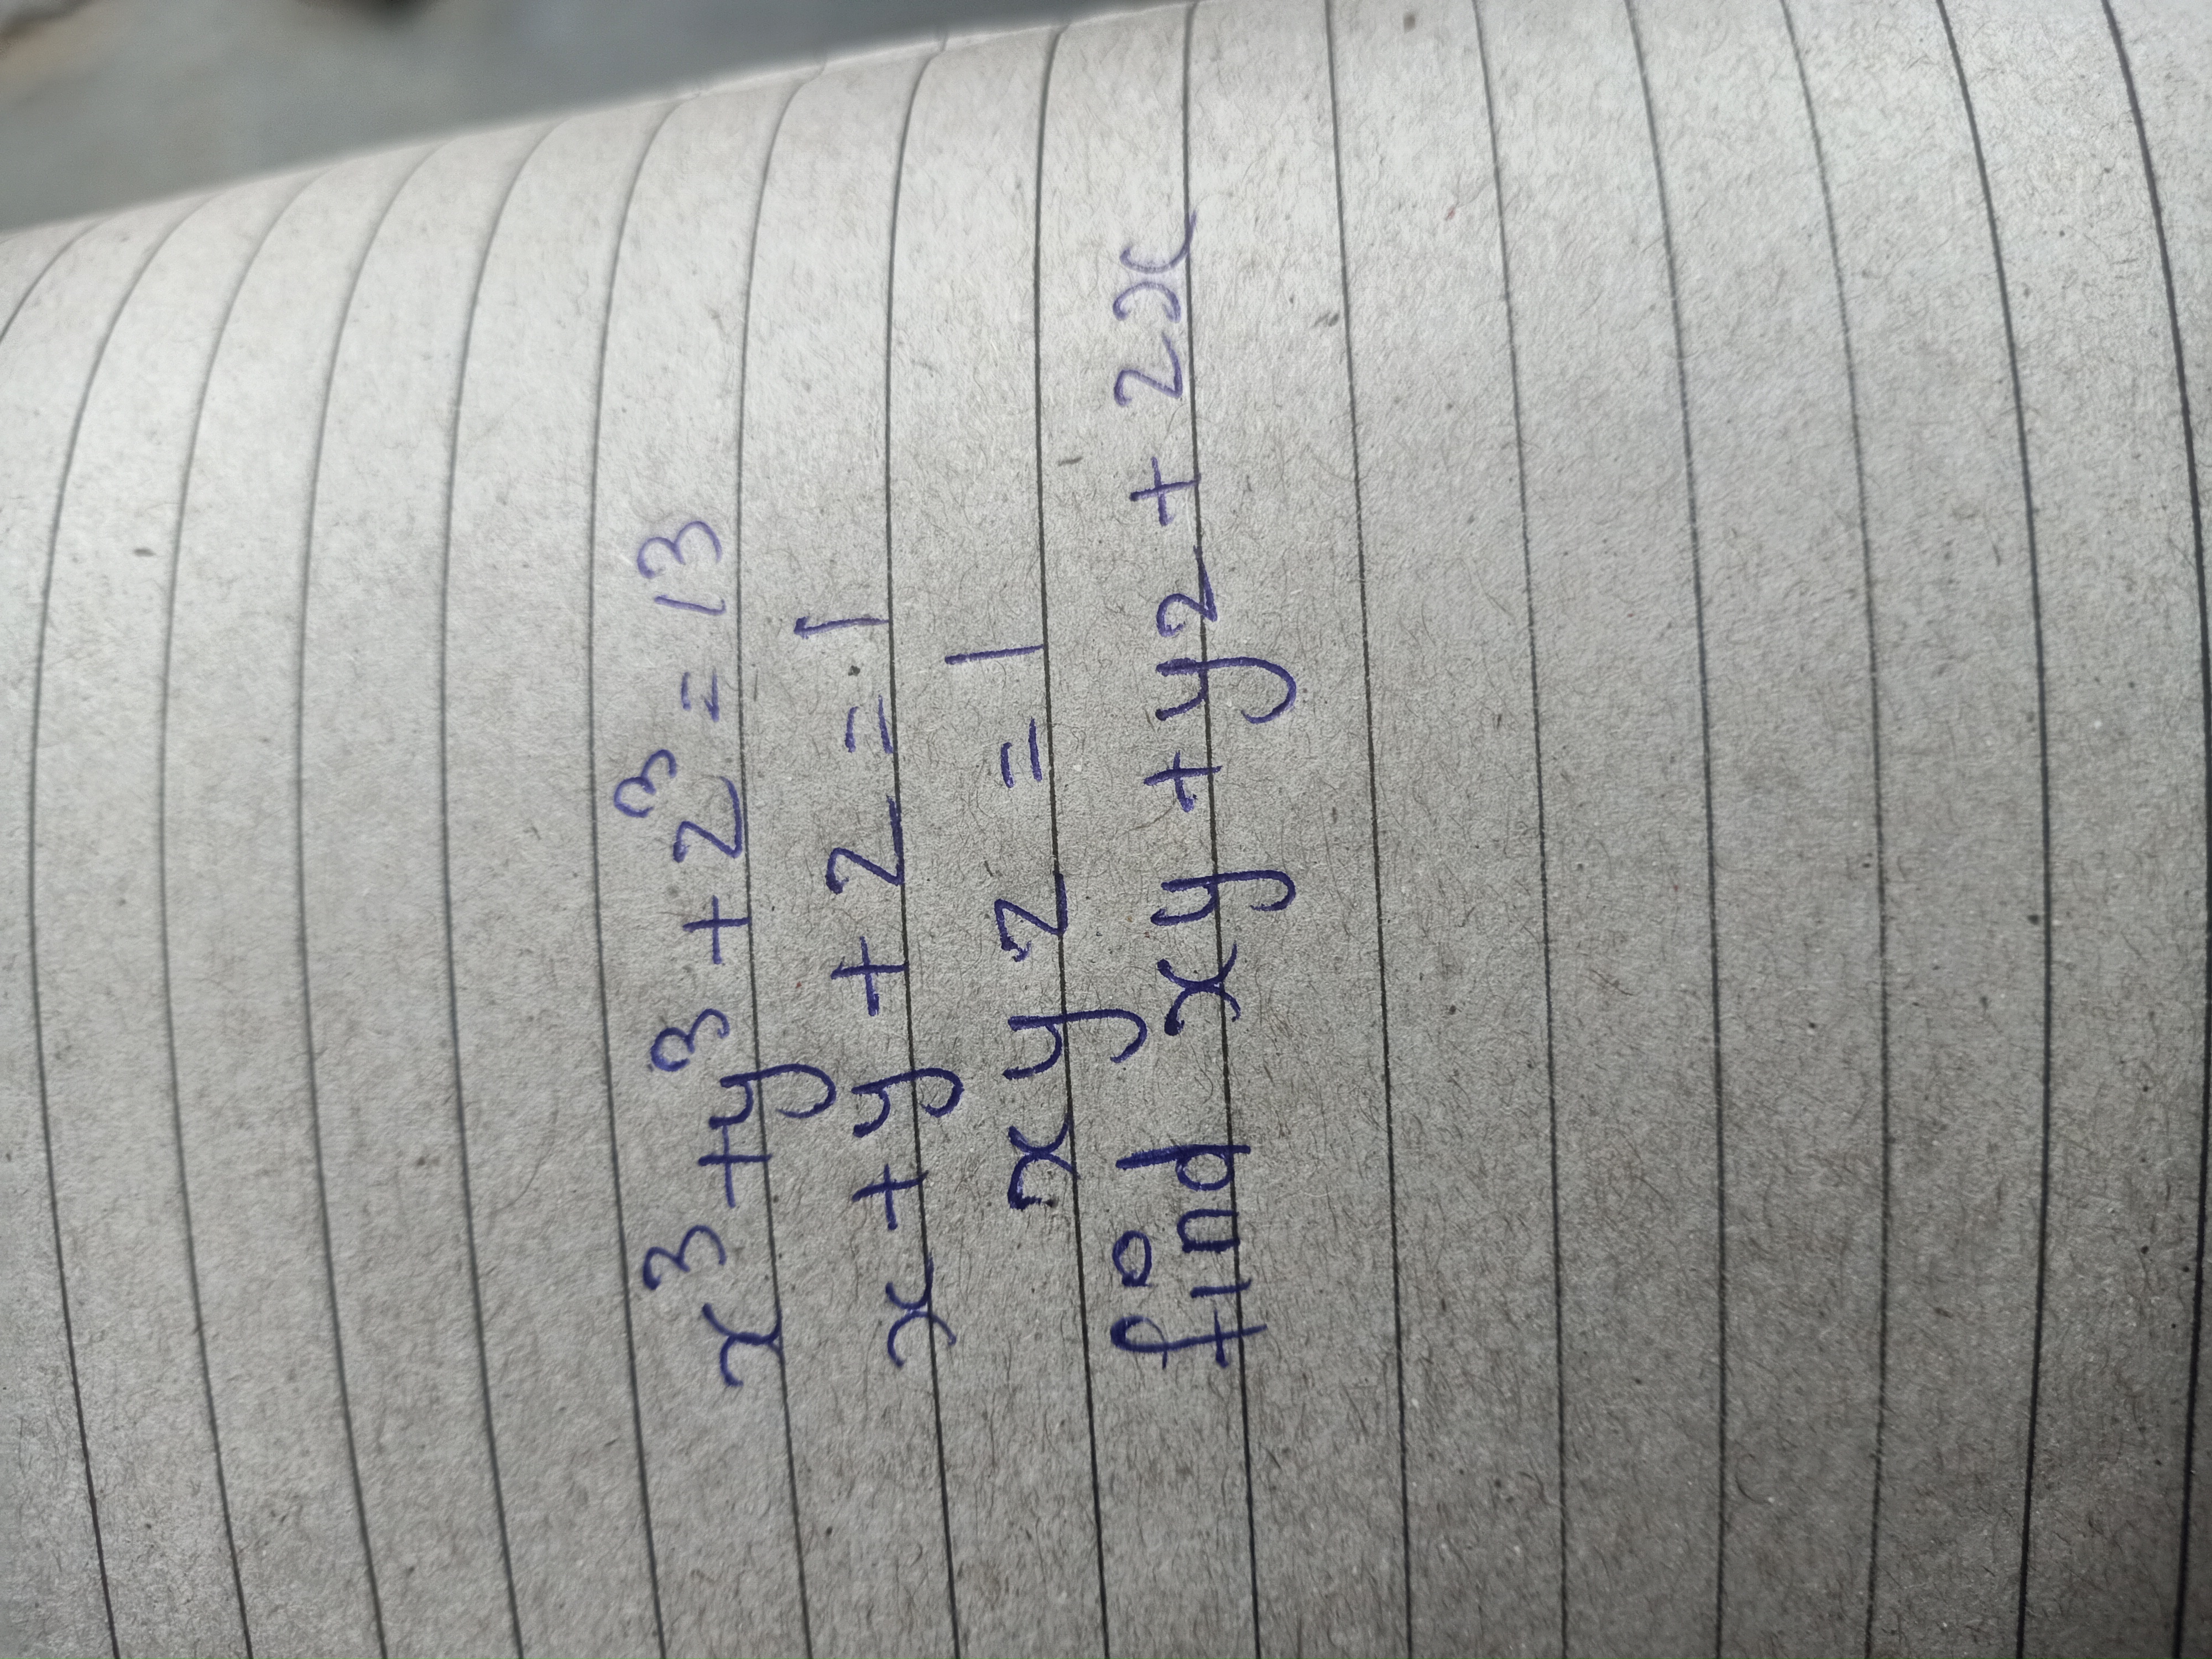 x³ + y³ + z³ = 13
x + y + z = 1
xyz = 1
find xy + yz + zx